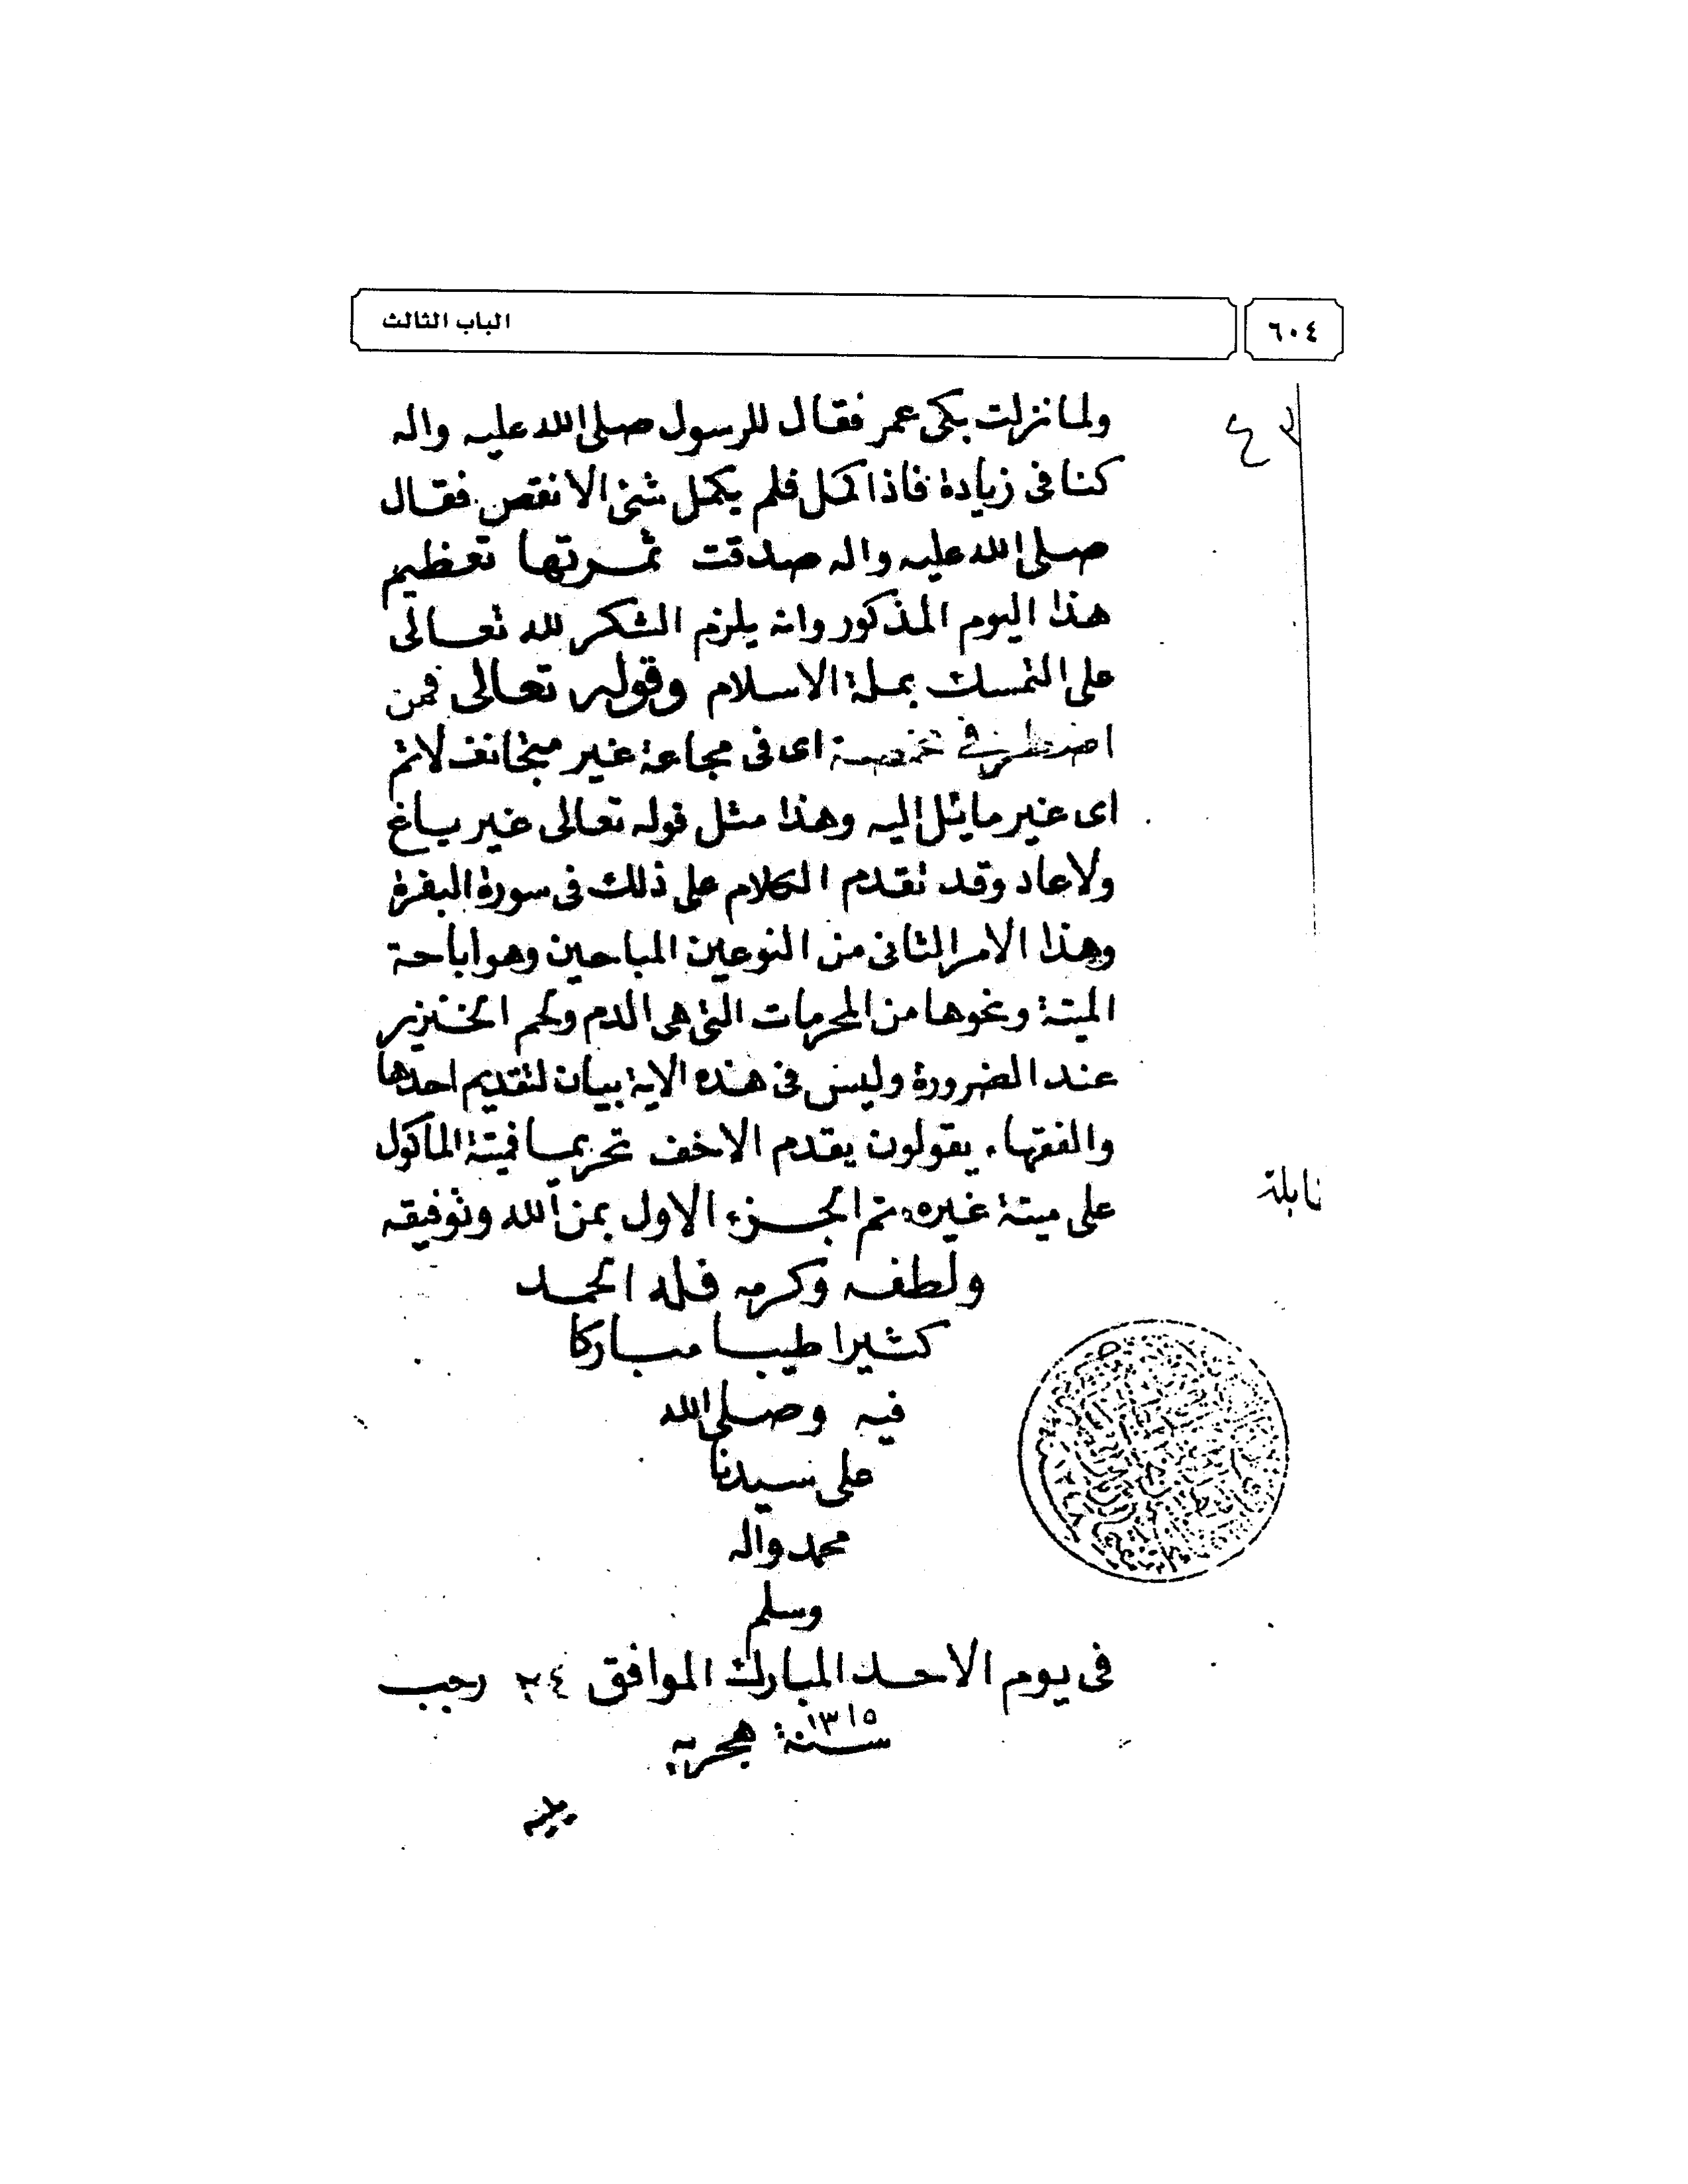 ٦٠٤
الباب الثالث
ولما نزلت بكى عمر فقال للرسول صلى الله عليه واله
كنا فى زيادة فاذا كمل فلم يكمل شئ الا نقص فقال
صلى الله عليه واله صدقت ثمرتها تعظيم
هذا اليوم المذكور وانه يلزم الشكر لله تعالى
على التمسك بملة الاسلام وقوله تعالى فمن
اضطر في مخمصة اى فى مجاعة غير متجانف لاثم
اى غير مائل اليه وهذا مثل قوله تعالى غير باغ
ولا عاد وقد تقدم الكلام على ذلك فى سورة البقرة
وهذا الامر الثانى من النوعين المباحين وهو اباحة
الميتة ونحوها من المحرمات التى هى الدم ولحم الخنزير
عند الضرورة وليس فى هذه الاية بيان لتقديم احدها
والفقهاء يقولون يقدم الاخف تحريما فميتة الماكول
على ميتة غيره تم الجزء الاول بمن الله وتوفيقه
ولطفه وكرمه فله الحمد
كثيرا طيبا مباركا
فيه وصلى الله
على سيدنا
محمد واله
وسلم
فى يوم الاحد المبارك الموافق ٢٤ رجب
سنة ١٣١٥ هجريه